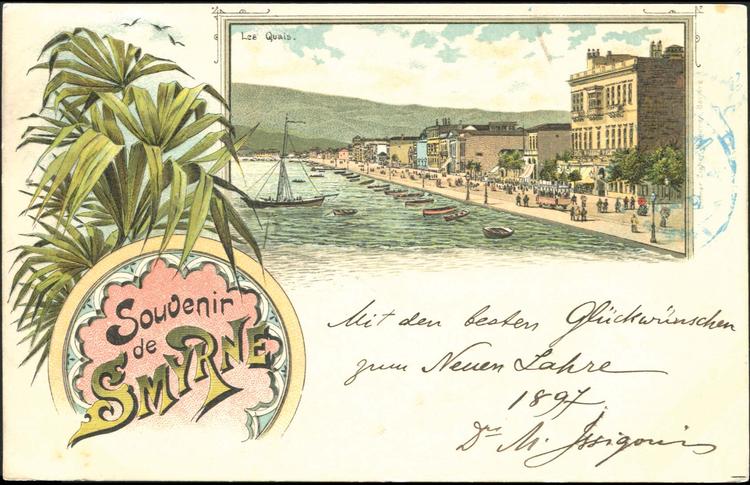 Les Quais.
Souvenir
de
SMYRNE
Mit den besten Glückwünschen
zum Neuen Jahre
1897
Dr M. Issigonis